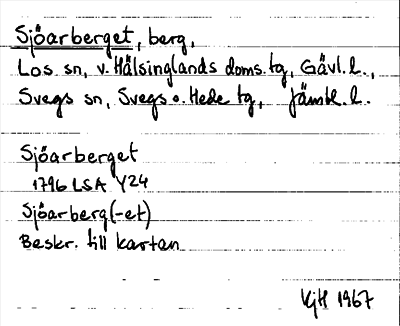 Sjöarberget, berg,
Los sn, v. Hälsinglands doms. tg, Gävl. l.,
Svegs sn, Svegs o. Hede tg, Jämtl. l.
Sjöarberget
1796 LSA Y24
Sjöarberg(-et)
Beskr. till kartan
KjH 1967